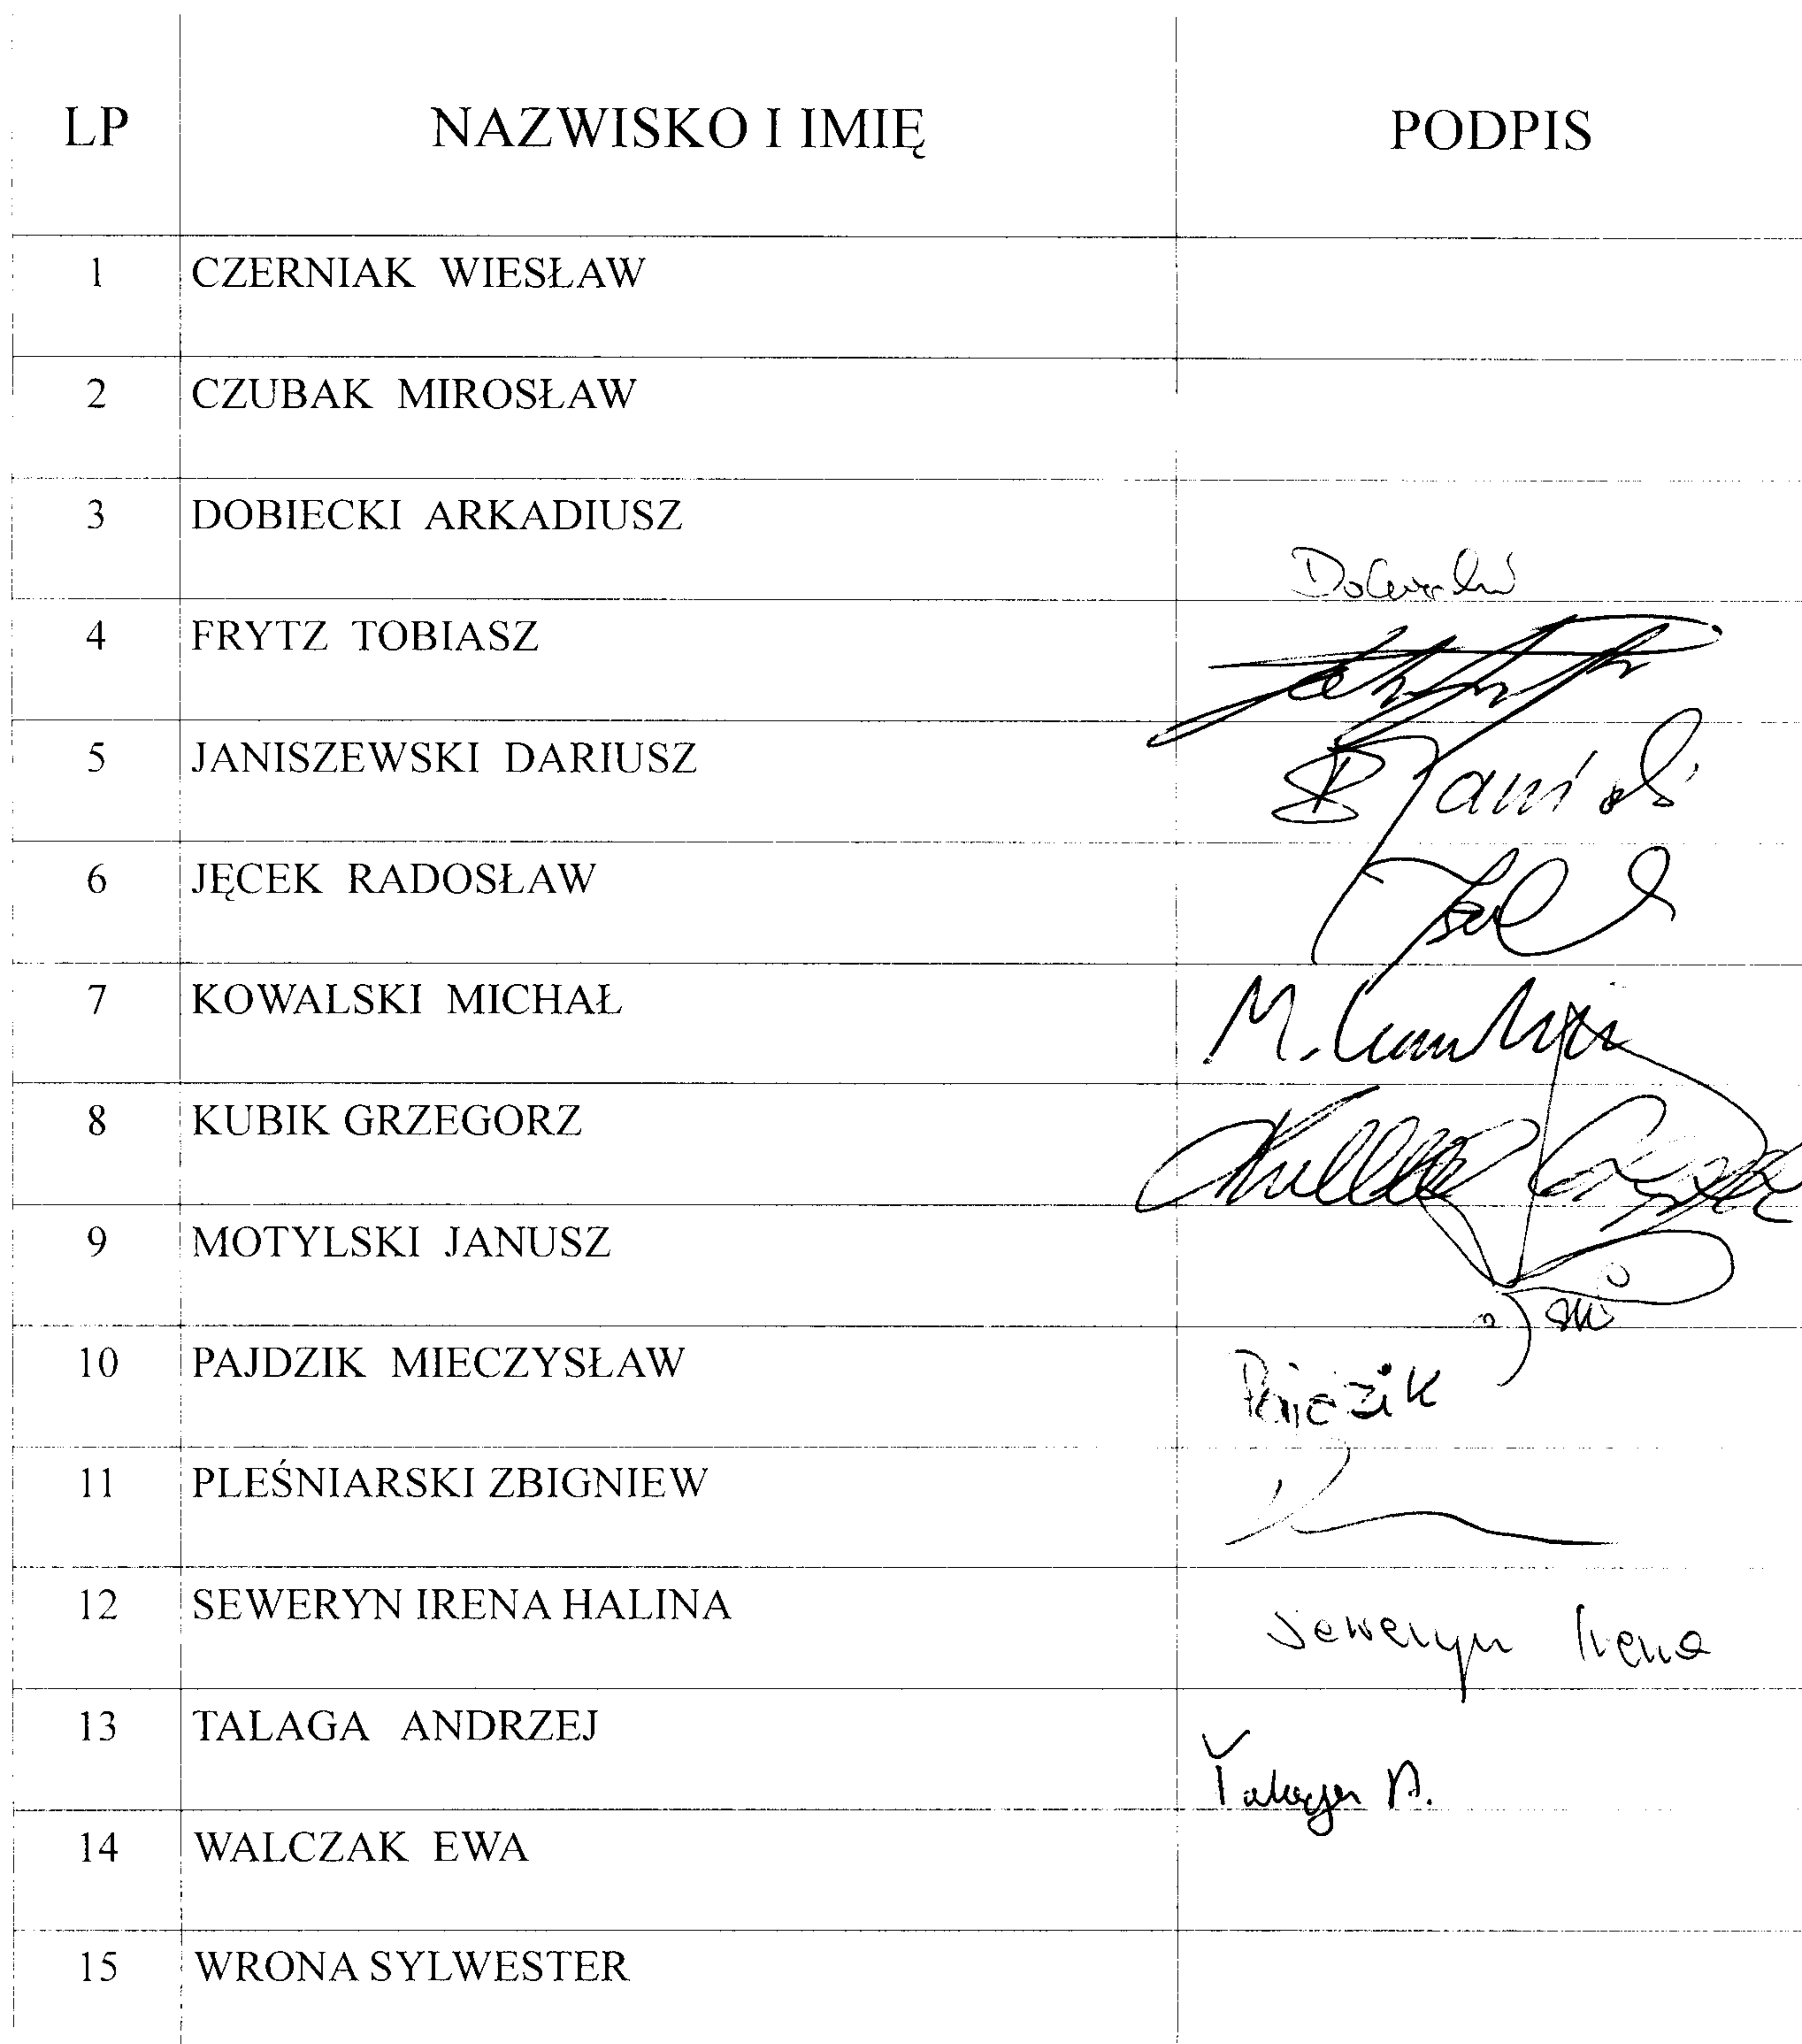 LP NAZWISKO I IMIĘ PODPIS
1 CZERNIAK WIESŁAW
2 CZUBAK MIROSŁAW
3 DOBIECKI ARKADIUSZ
4 FRYTZ TOBIASZ
5 JANISZEWSKI DARIUSZ
6 JĘCEK RADOSŁAW
7 KOWALSKI MICHAŁ M.
8 KUBIK GRZEGORZ
9 MOTYLSKI JANUSZ
10 PAJDZIK MIECZYSŁAW Pajdzik
11 PLEŚNIARSKI ZBIGNIEW
12 SEWERYN IRENA HALINA Seweryn Irena
13 TALAGA ANDRZEJ Talaga A.
14 WALCZAK EWA
15 WRONA SYLWESTER